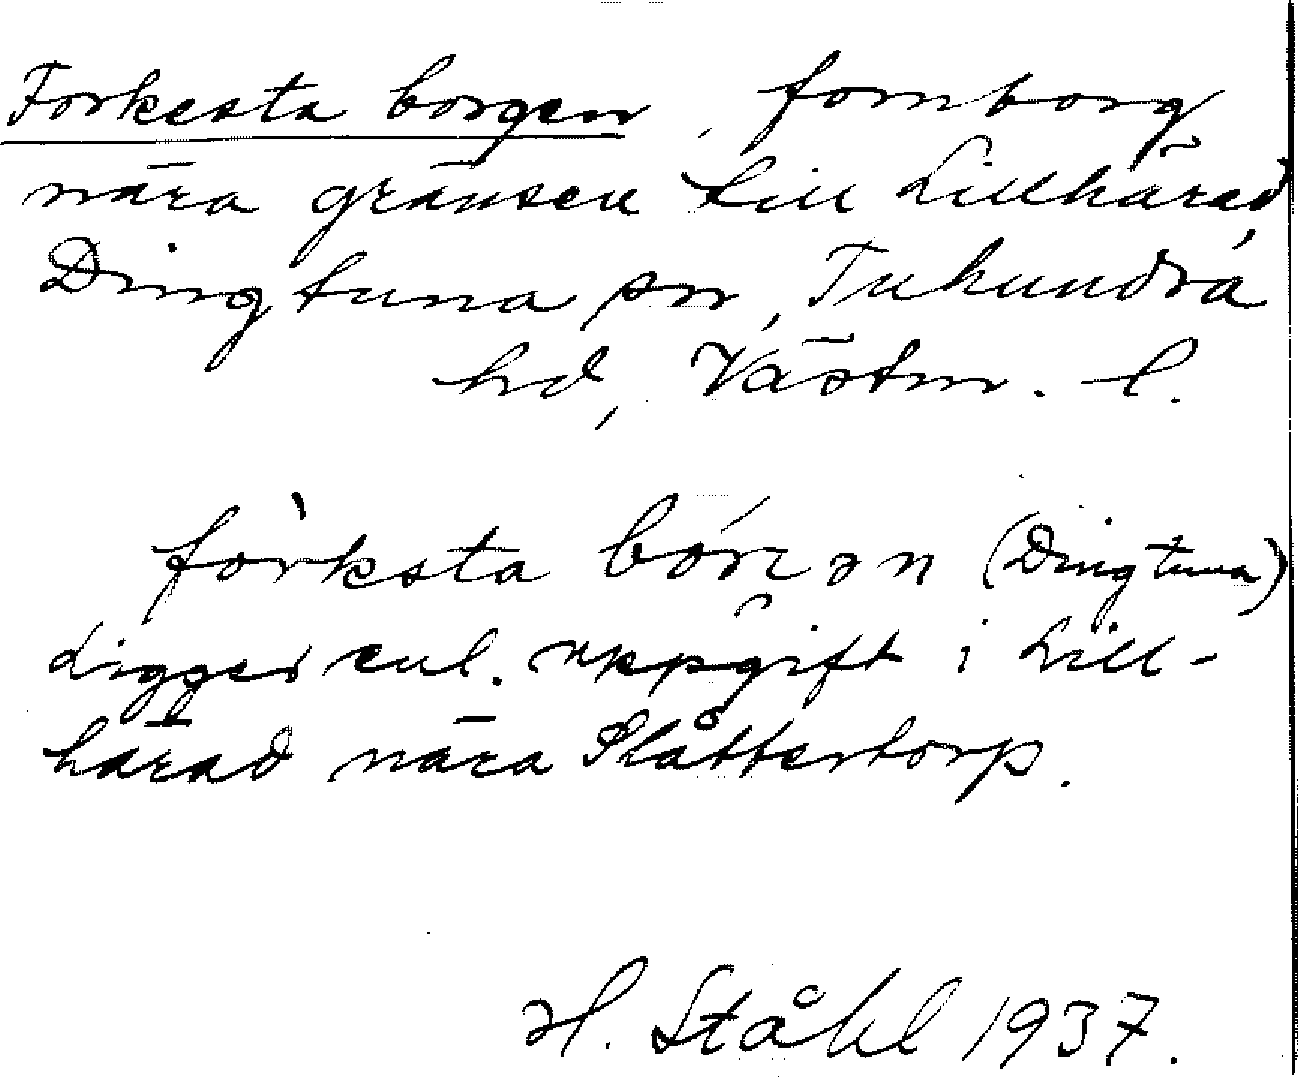 Forkesta borgen, fornborg
nära gränsen till Lillhärad
Dingtuna sn, Tuhundra
hd, Västm. l.
fòrksta bórɜən (Dingtuna)
ligger enl. uppgift i Lill-
härad nära Slåttertorp.
H. Ståhl 1937.